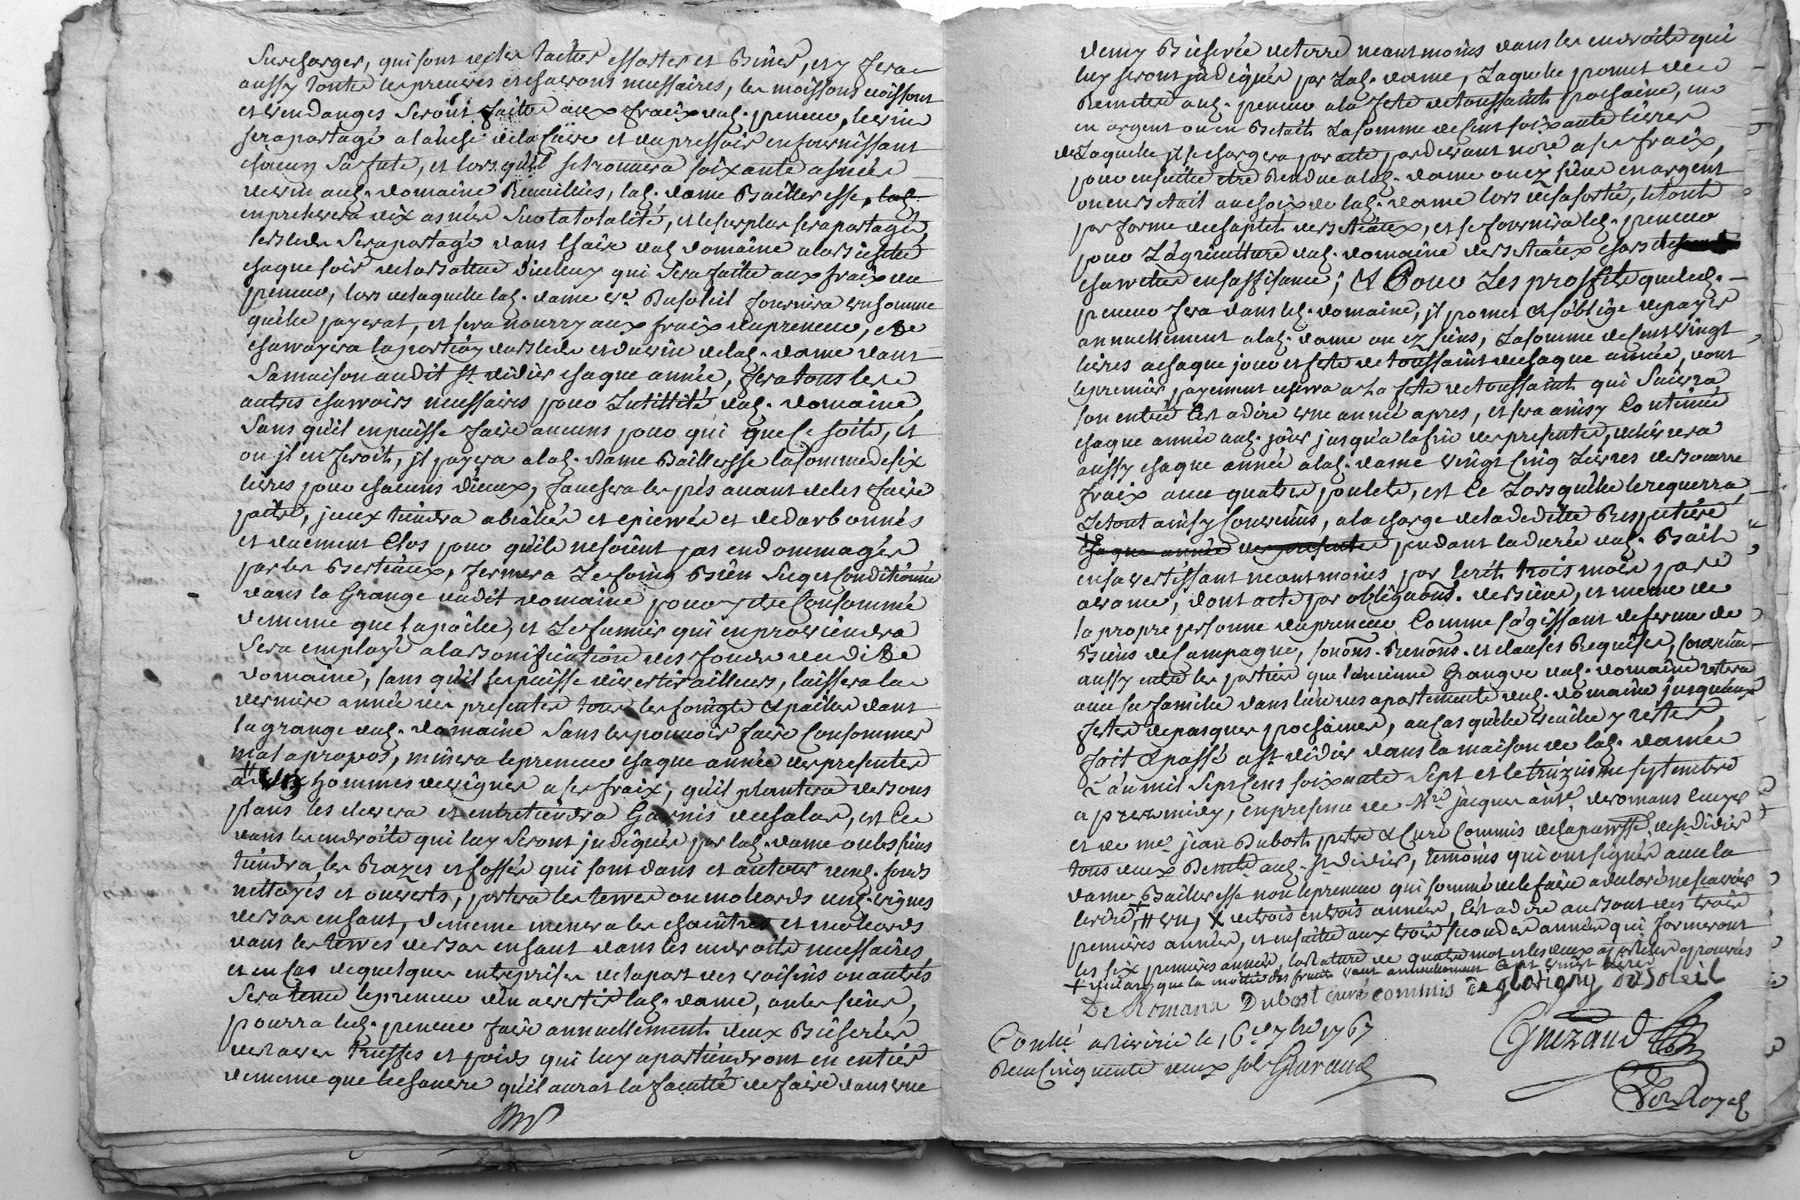 Surcharger, qui sont de les tailler essarter et biner, et y fera
aussy toutte les preuves et charrois necessaires, les moissons noissont
et vendanges seront faitte aux fraix dud. preneur, le vin
sera partagé a l'anche de la cuve et du pressoir en fournissant
chacun sa futte, et lors qu'il se trouvera soixante asnées
de vin aud. domaine Recueillies, lad. dame Bailleresse
en prelevera dix asnées sur la totalité, et le surplus sera partagé
les bleds sera partagé dans l'haire dud. domaine a la
chaque soir de la battue d'iceluy qui sera faitte aux fraix du
preneur, lors de laquelle lad. dame de Busoleil fournira un homme
qu'elle payerat, et sera nourry aux fraix du preneur, et
charroyera la portion des bleds et du vin de lad. dame dans
sa maison audit St. didier chaque année, fera tous les
autres charrois necessaires pour l'utillité dud. domaine
sans qu'il en puisse faire aucuns pour qui que ce soite, et
ou il en feroit, il payera a lad. dame Bailleresse la somme de six
livres pour chacuns d'iceux, fauchera les prés avant de les faire
paitre, iceux tiendra abialés et epierrés et dedarbonnés
et duement clos pour qu'ils ne soient pas endommagés
par les Bestiaux, fermera les foings bien secq et conditionné
dans la Grange dudit domaine pour y etre consommé
de meme que la paille, et le fumier qui en proviendra
sera employé a la bonification des fonds dudit
domaine, sans qu'il le puisse divertir ailleurs, laissera la
derniere année des presentes tous les foingts et pailles dans
la grange dud. domaine sans les pouvoir faire consommer
mal a propos, minera le preneur chaque année des presentes
hommes de vignes a ses fraix, qu'il plantera de bons
plans les elevera et entretiendra Garnis d'echalas, et ce
dans les endroits qui luy seront indiqués par lad. dame ou les siens
tiendra les Razes et fossés qui sont dans et autour desd. fonds
nettoyés et ouverts, portera les terres ou molards desd. vignes
de bas en haut, de meme menera les chaintres et molards
dans les terres de bas en haut dans les endroits necessaires
et en cas de quelques entreprises de la part des voisins ou autres
sera tenu le preneur d'en avertir lad. dame, ou les siens,
pourra led. preneur faire annuellement deux Bicherées
de raves truffes et poids qui luy apartiendront en entier
de meme que le chanvre qu'il aurat la faculté de faire dans une
demy Bicherée de terre neantmoins dans les endroits qui
luy seront indiqués par lad. dame, laquelle promet de
Remettre aud. preneur a la fete de toussaint prochaine, ou
en argent ou en Betail la somme de cent soixante livres
de laquelle il se chargera par acte par devant nore a ses fraix,
pour ensuitte etre Rendue a lad. dame ou ez siens en argent
ou en Betail au choix de lad. dame lors de sa sortie, le tout
par forme de cheptel de bestiaux, et se fournira led. preneur
pour l'agriculture dud. domaine de bestiaux chars
charette en suffisance; Et Pour les proffits que led.
preneur fera dans led. domaine, il promet et s'oblige de payer
annuellement a lad. dame ou ez siens, la somme de cent vingt
livres a chaque jour et fete de toussaint de chaque année, dont
le premier payement echerra a la fete de toussaint qui suivra
son entrée c'est a dire une année apres, et sera ainsy continué
chaque année aud. jour jusqu'a la fin des presentes, delivrera
aussy chaque année a lad. dame vingt cinq livres de beurre
fraix avec quatre poulets, et ce lorsqu'elle le requerra
le tout ainsy convenus, a la charge de la deditte Respective
chaque année des presentes pendant la durée dud. Bail
en s'avertissant neantmoins par ecrit trois mois par
avance, dont acte par obligaons. de biens, et meme de
la propre personne du preneur comme s'agissant de ferme de
Biens de Campagne, soumons. Renons. et clauses Requises, convenu
aussy entre les parties que l'ancienne Grangere dud. domaine restera
avec sa famille dans l'un des apartements dud. domaine jusqu'aux
fetes de pasques prochaines, au cas qu'elle veuille y rester,
fait et passé a St. didier dans la maison de lad. dame
l'an mil sept cens soixante sept et le treizieme septembre
apres midy, en presence de Mre jacques ainé deromans
et de mre jean Dubost pretre et curé commis de la parroisse de St. didier
tous deux demts. aud. St. didier, temoins qui ont signés avec la
dame Bailleresse non le preneur qui sommé de le faire a declaré ne scavoir
de trois en trois années, c'est a dire au bout des trois
premieres années, et ensuitte aux trois secondes années qui formeront
les six premieres années, la rature de quatre mots et les deux apostilles aprouvés
que la moitié des fruits vaut annuellement cent vingt livres
De Romans Dubost curé commis de glavigny busoleil
Conlé a riverie le 16e. 7bre 1767
Reçu cinquante deux sols Guiraud
Guizaud
Nore. Royal